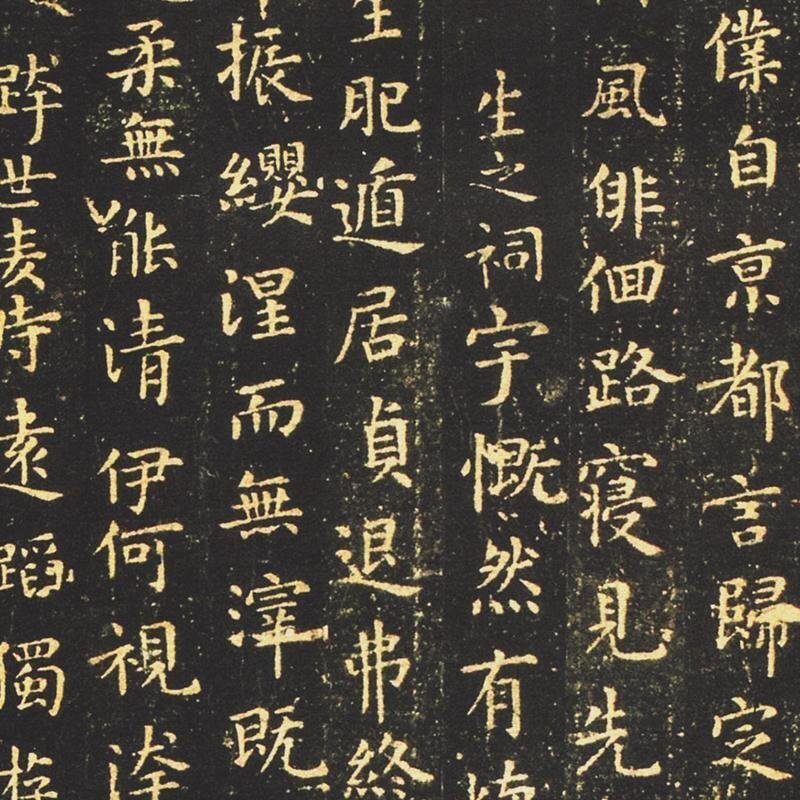 僕自亰都言歸定
風俳佪路寢見先
生之祠宇慨然有
生肥遁居貞退弗終
振纓涅而無滓既
柔無能清伊何視洿
跨世淩時遠蹈獨遊